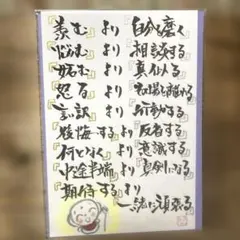 『羨む』より『自分を磨く』
『悩む』より『相談する』
『妬む』より『真似る』
『怒る』より『場を離れる』
『言い訳』より『行動する』
『後悔する』より『反省する』
『何となく』より『意識する』
『中途半端』より『真剣になる』
『期待する』より
『一緒に頑張る』